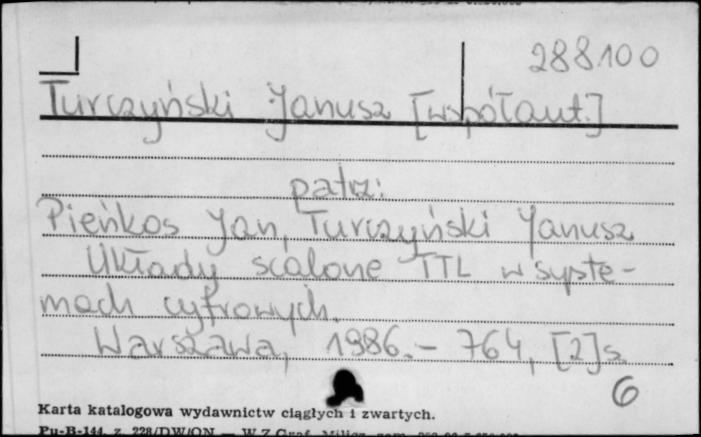 288.100
Turczyński Janusz [współaut.]
patrz:
Pieńkos Jan, Turczyński Janusz
Układy scalone TTL w syste-
mach cyfrowych.
Warszawa, 1986. – 764, [2] s.
6
Karta katalogowa wydawnictw ciągłych i zwartych.
Pu-B-144, z. 228/DW/ON — W.Z.Graf.